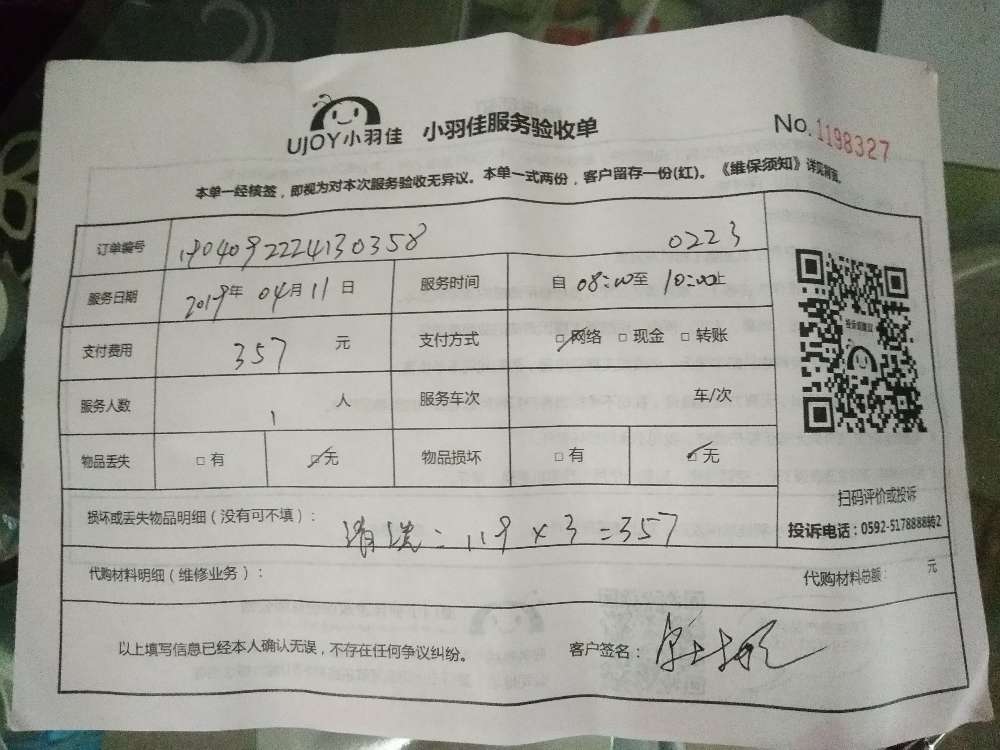 UJOY小羽佳 小羽佳服务验收单 No.1198327
本单一经核签，即视为对本次服务验收无异议。本单一式两份，客户留存一份(红)。《维保须知》详见背面。
订单编号 1904092224130358 0223
服务日期 2019年 04月 11日 服务时间 自 08:00至 10:00止
支付费用 357 元 支付方式 □网络 □现金 □转账
服务人数 1 人 服务车次 车/次
物品丢失 □有 □无 物品损坏 □有 □无
损坏或丢失物品明细（没有可不填）： 清洗：119×3=357
代购材料明细（维修业务）： 代购材料总额： 元
以上填写信息已经本人确认无误，不存在任何争议纠纷。 客户签名：
扫码评价或投诉
投诉电话：0592-5178888转2